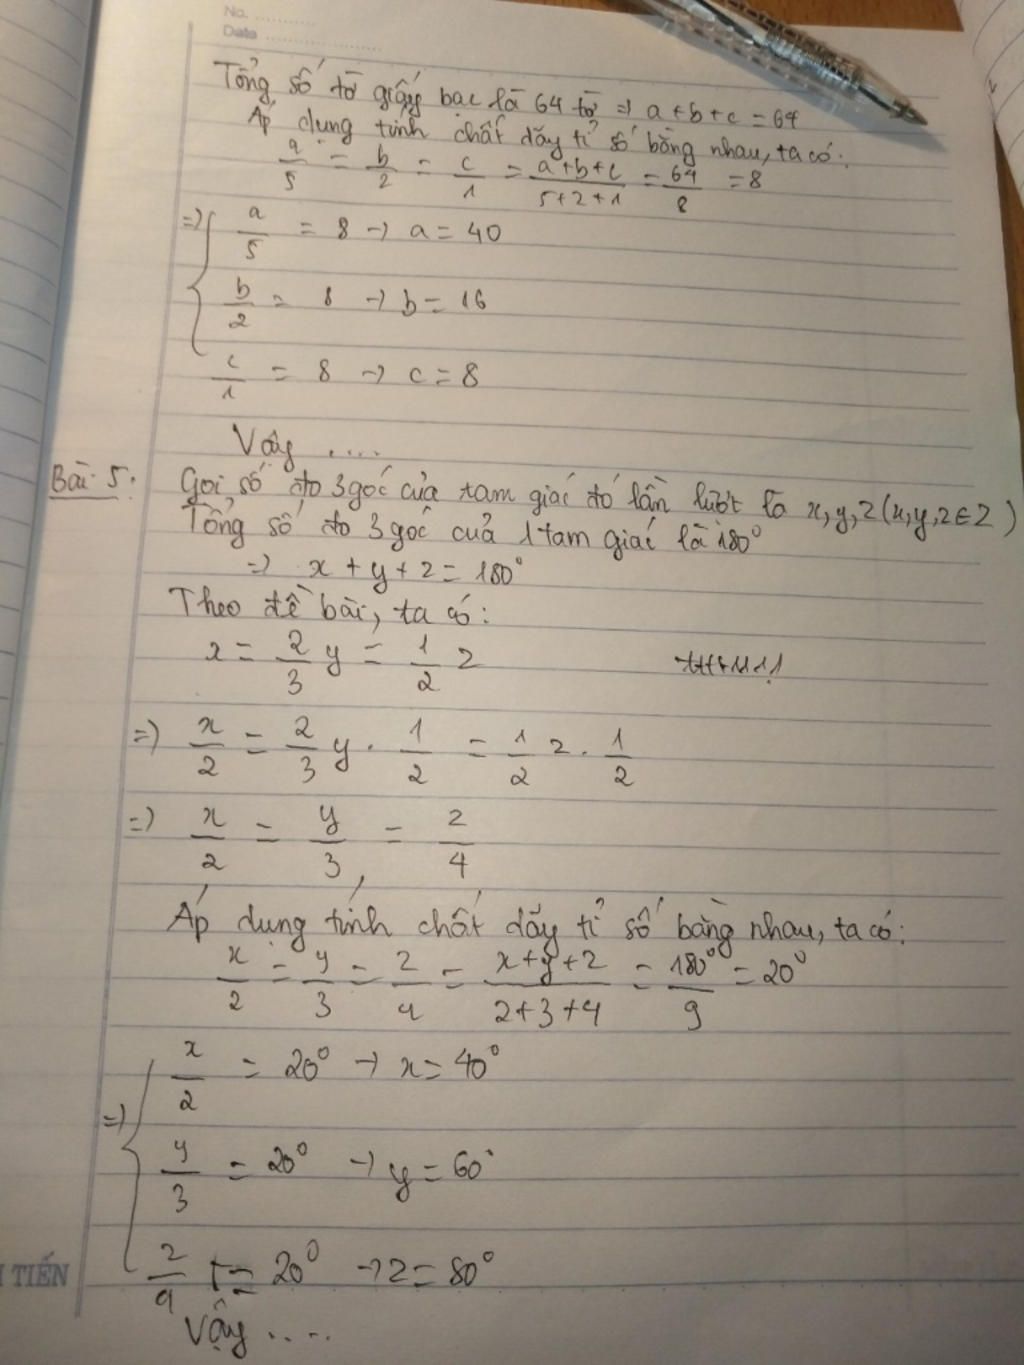 No. ............
Date ......................
Tổng số tờ giấy bạc là 64 tờ => a+b+c = 64
Áp dụng tính chất dãy tỉ số bằng nhau, ta có:
a/5 = b/2 = c/1 = a+b+c/5+2+1 = 64/8 = 8
=> { a/5 = 8 -> a = 40
b/2 = 8 -> b = 16
c/1 = 8 -> c = 8
Vậy ....
Bài 5: Gọi số đo 3 góc của tam giác đó lần lượt là x, y, z (x, y, z ∈ Z)
Tổng số đo 3 góc của 1 tam giác là 180°
=> x + y + z = 180°
Theo đề bài, ta có:
x = 2/3 y = 1/2 z
=> x/2 = 2/3 y . 1/2 = 1/2 z . 1/2
=> x/2 = y/3 = z/4
Áp dụng tính chất dãy tỉ số bằng nhau, ta có:
x/2 = y/3 = z/4 = x+y+z/2+3+4 = 180°/9 = 20°
=> { x/2 = 20° -> x = 40°
y/3 = 20° -> y = 60°
z/4 = 20° -> z = 80°
TIẾN
Vậy ....